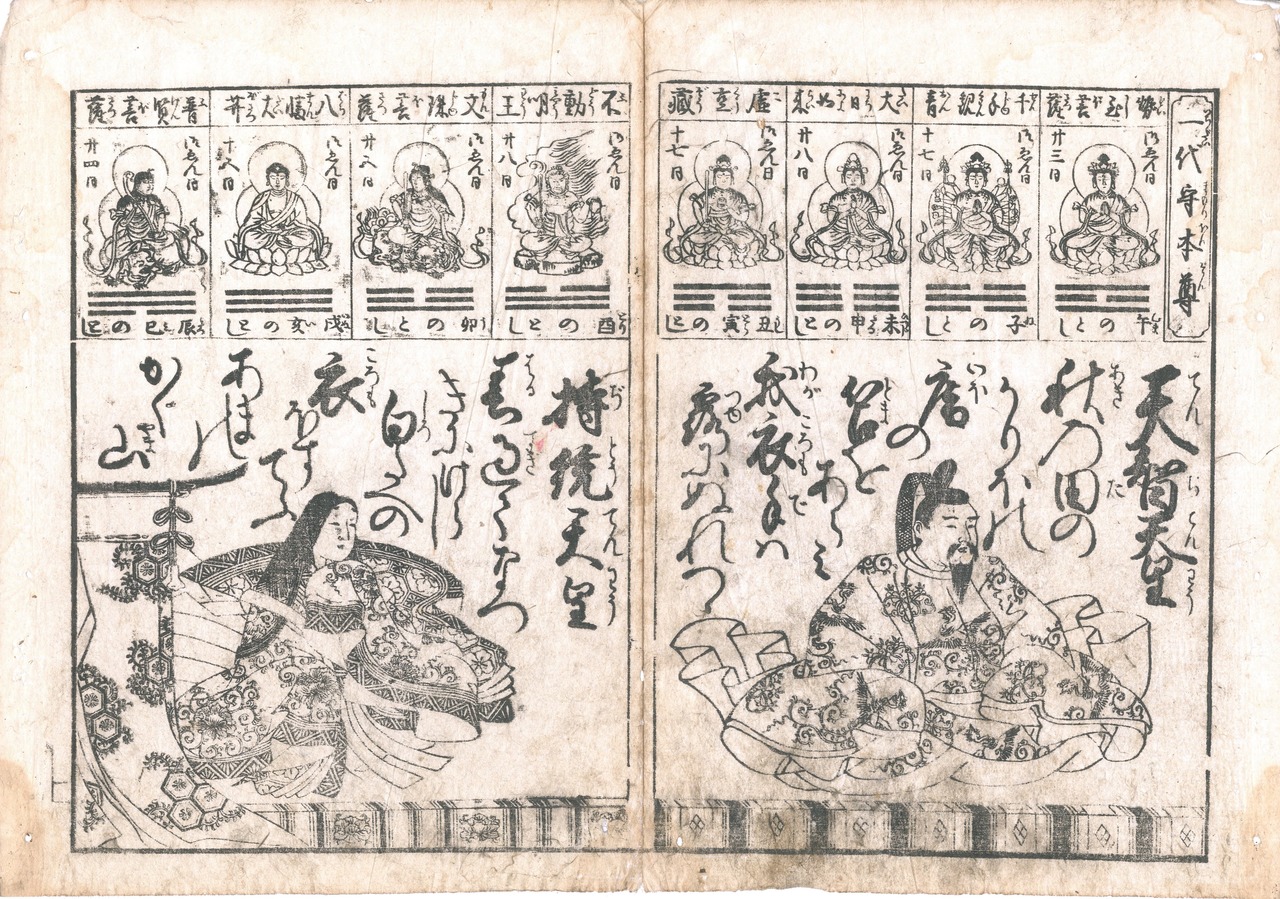 一代守本尊
勢至菩薩
御ゑん日
廿三日
午のとし
千手観音
御ゑん日
十七日
子のとし
大日如来
御ゑん日
廿八日
未申のとし
虚空藏
御ゑん日
十七日
丑寅のとし
不動明王
御ゑん日
廿八日
酉のとし
文殊菩薩
御ゑん日
卯のとし
八幡大井
御ゑん日
十八日
戌亥のとし
普賢菩薩
御ゑん日
廿四日
辰巳のとし
天智天皇
秋の田の
かりほの
庵の
苫を
あらみ
我衣手は
露にぬれつゝ
持統天皇
春過てなつ
きにけらし
白たへの
衣
ほすてふ
あまの
かぐ山